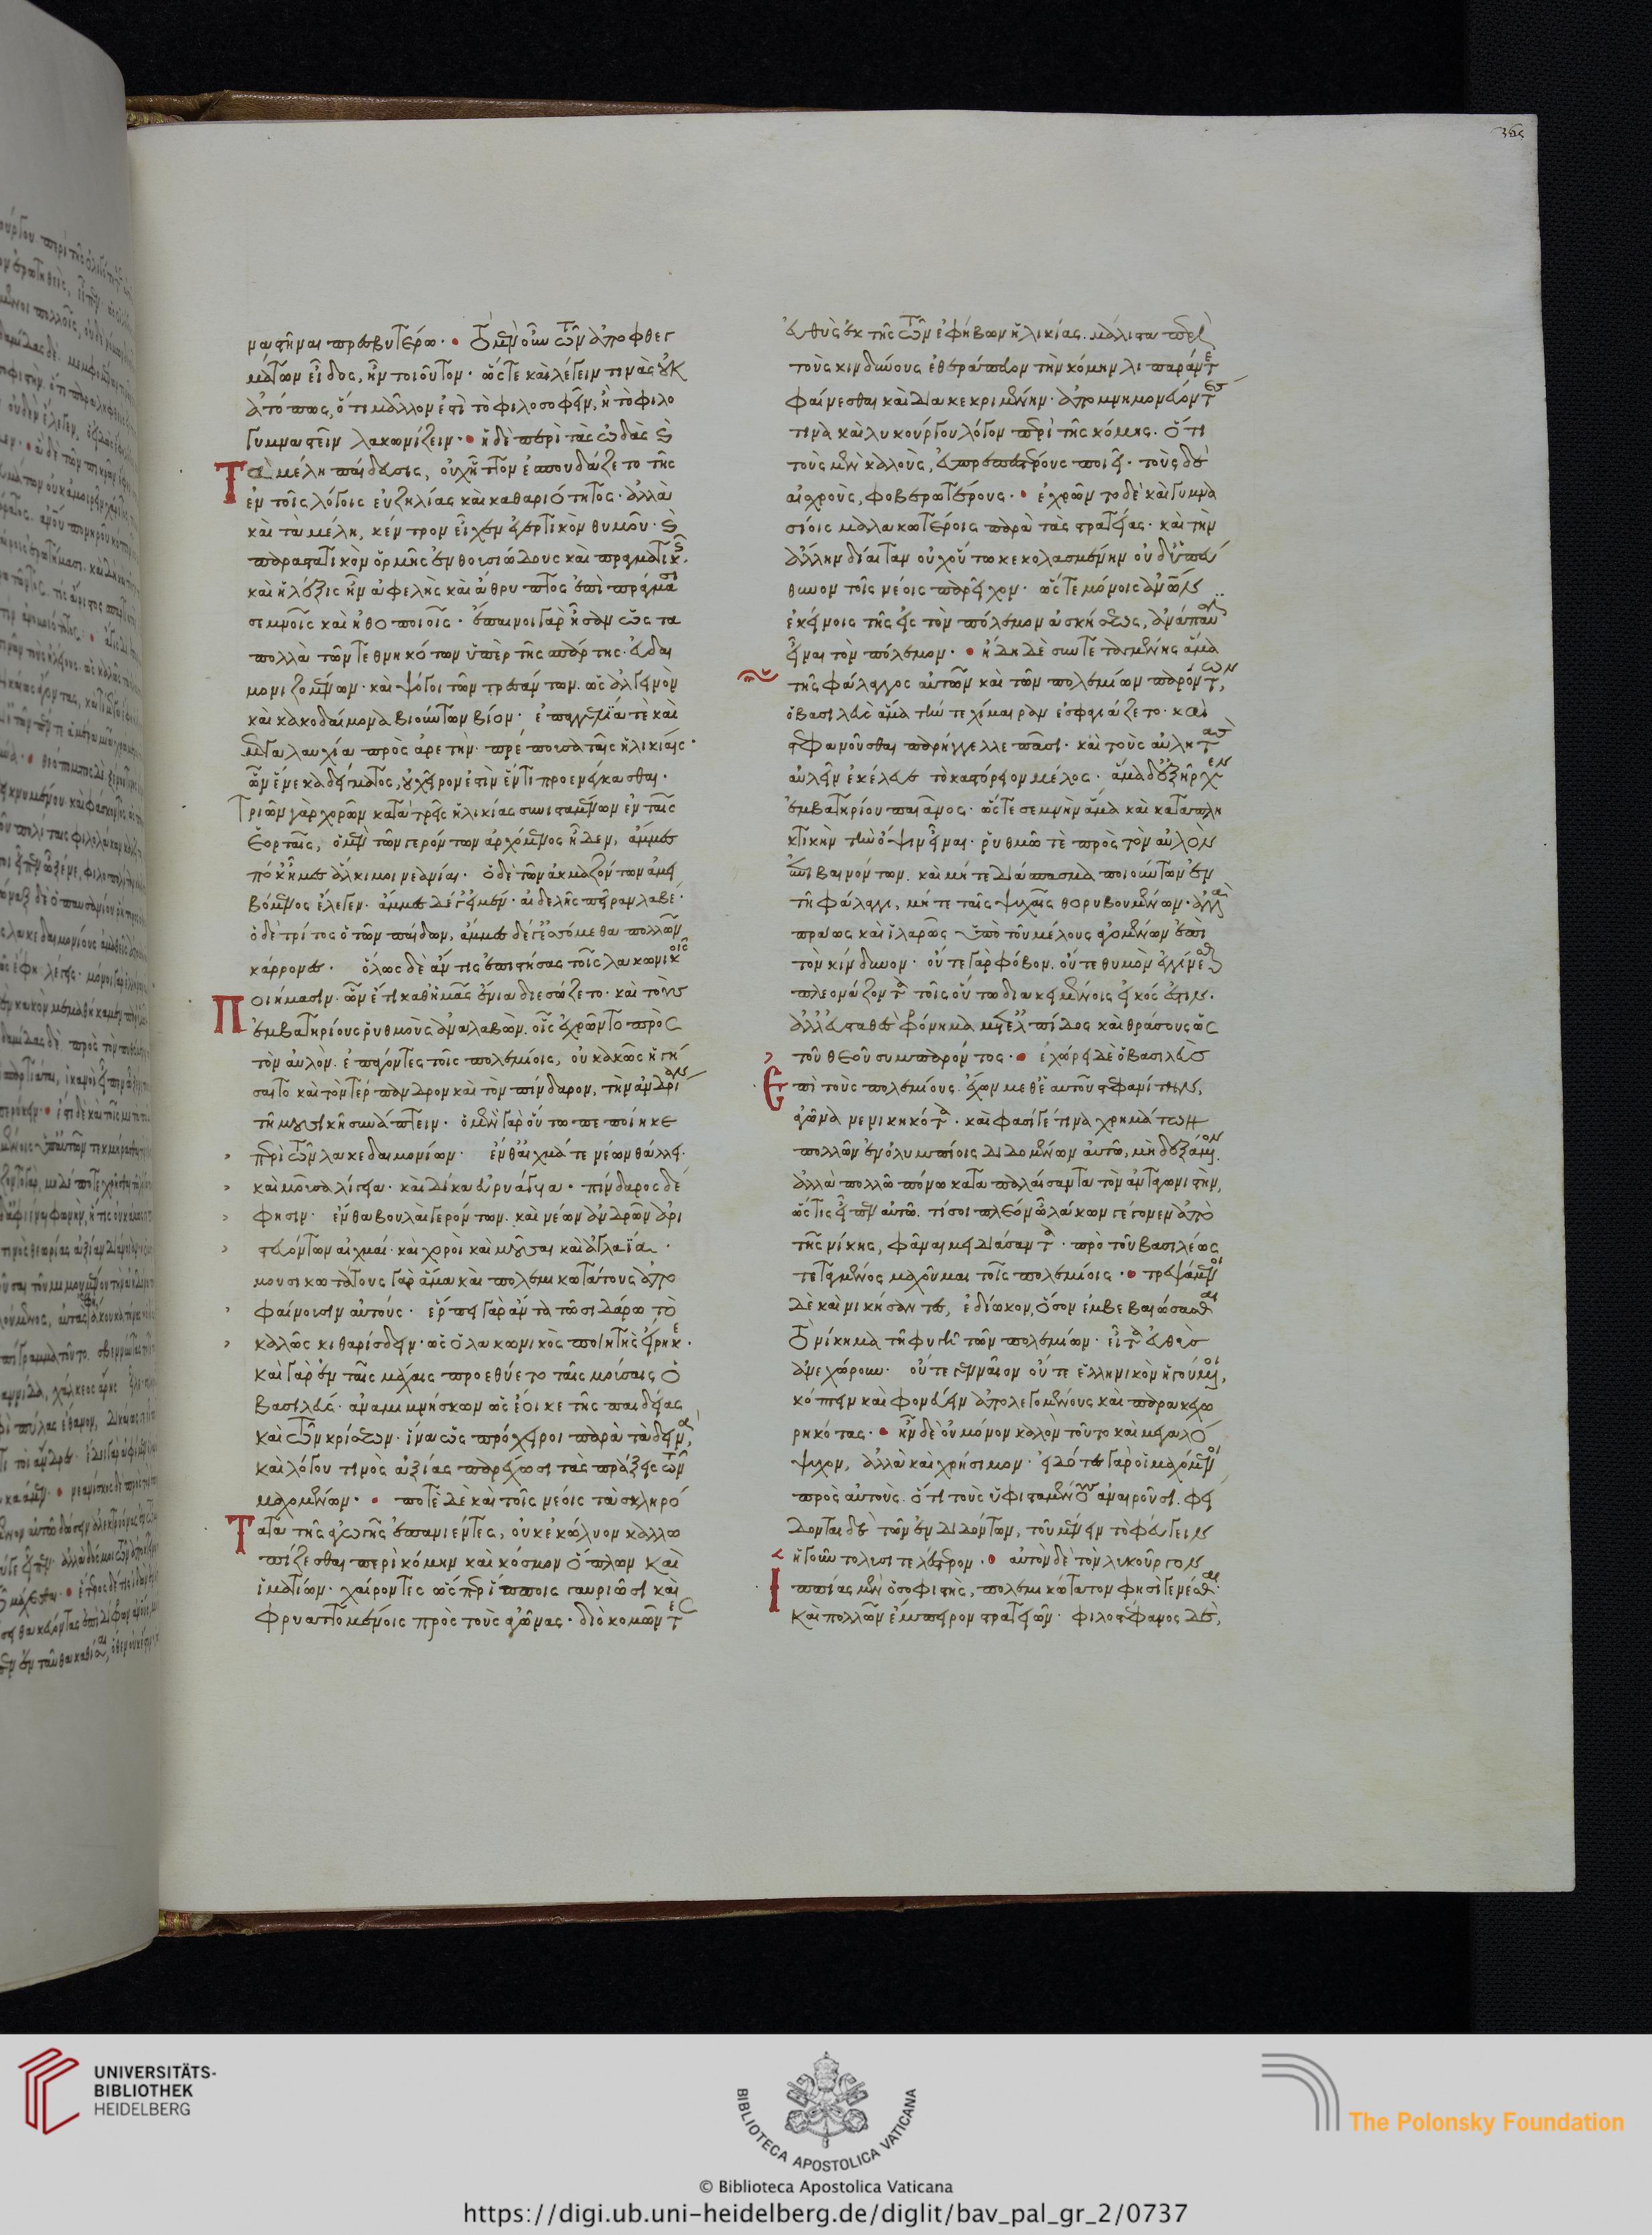 ναστῆναι πρεσβυτέρω· Τὸ μὲν οὖν τῶν ἀποφθεγ
μάτων εἶδος, ἦν τοιοῦτον· ὥστε καὶ λέγειν τινὰς οὐκ
ἀτόπως, ὅτι μᾶλλον ἐστὶ τὸ φιλοσοφεῖν, ἢ τὸ φιλο
γυμναστεῖν λακωνίζειν· ἡ δὲ περὶ τὰς ὠδὰς καὶ
Τὰ μέλη παίδευσις, οὐχ ἧττον ἐσπουδάζετο τῆς
ἐν τοῖς λόγοις εὐζηλίας καὶ καθαριότητος· ἀλλὰ
καὶ τὰ μέλη, κέντρον εἶχεν ἐγερτικὸν θυμοῦ· καὶ
παραστατικὸν ὁρμῆς ἐνθουσιώδους καὶ πραγματικῆς·
καὶ ἡ λέξις ἦν ἀφελὴς καὶ ἄθρυπτος ἐπὶ πράγμασι
σεμνοῖς καὶ ἠθοποιοῖς· ἔπαινοι γὰρ ἦσαν ὡς τα
πολλὰ τῶν τεθνηκότων ὑπὲρ τῆς σπάρτης· εὐδαι
μονιζομένων· καὶ ψόγοι τῶν τρεσάντων. ὡς ἀλγεινὸν
καὶ κακοδαίμονα βιούντων βίον· ἐπαγγελία τὲ καὶ
μεγαλαυχία πρὸς ἀρετὴν πρέπουσα ταῖς ἡλικίαις·
ὧν ἕνεκα δείγματος, οὐ χεῖρον ἐστὶν ἕν τι προενέγκασθαι·
Τριῶν γὰρ χορῶν κατὰ τρεῖς ἡλικίας συνισταμένων ἐν ταῖς
ἑορταῖς, ὁ μὲν τῶν γερόντων ἀρχόμενος ἦδεν, ἄμμες
πόκ' ἦμες ἄλκιμοι νεανίαι· ὁ δὲ τῶν ἀκμαζόντων ἀμει
βόμενος ἔλεγεν. ἄμμες δέ γ' εἰμέν· αἰ δὲ λῆς πεῖραν λαβέ·
ὁ δὲ τρίτος ὁ τῶν παίδων, ἄμμες δέ γ' ἐσόμεθα πολλῶν
κάρρονες. ὅλως δὲ ἄν τις ἐπιστήσας τοῖς λακωνικοῖς
Ποιήμασιν. ὧν ἔτι καθ' ἡμᾶς ἔνια διεσώζετο· καὶ τοὺς
ἐμβατηρίους ῥυθμοὺς ἀναλαβὼν. οἷς ἐχρῶντο πρὸς
τὸν αὐλον. ἐπάγοντες τοῖς πολεμίοις, οὐ κακῶς ἡγή
σαιτο καὶ τὸν τέρπανδρον καὶ τὸν πίνδαρον, τὴν ἀνδρίαν
τῆ μουσικῆ συνάπτειν· ὁ μὲν γὰρ οὕτω πεποίηκε
περὶ τῶν λακεδαιμονίων· ἔνθ' αἰχμά τε νέων θάλλει·
καὶ μοῦσα λίγεια· καὶ δίκα εὐρυάγυια· πίνδαρος δέ
φησιν· ἔνθα βουλαὶ γερόντων. καὶ νέων ἀνδρῶν ἀρι
στευόντων αἰχμαί· καὶ χοροὶ καὶ μοῦσαι καὶ ἀγλαΐα·
μουσικωτάτους γὰρ ἅμα καὶ πολεμικωτάτους ἀπο
φαίνουσιν αὐτούς· ἕρπει γὰρ ἄντα τῶ σιδάρω τὸ
καλῶς κιθαρίσδειν· ὡς ὁ λακωνικὸς ποιητὴς εἴρηκε·
καὶ γὰρ ἐν ταῖς μάχαις προεθύετο ταῖς μούσαις ὁ
βασιλεύς· ἀναμιμνήσκων ὡς ἔοικε τῆς παιδείας
καὶ τῶν κρίσεων· ἵνα ὡς πρόχειροι παρὰ τὰ δεινὰ,
καὶ λόγου τινὸς ἀξίας παρέχωσι τὰς πράξεις τῶν
μαχομένων· ποτὲ δὲ καὶ τοῖς νέοις τὰ σκληρό
Τατα τῆς ἀγωγῆς ἐπανιέντες, οὐκ ἐκώλυον καλλω
πίζεσθαι περὶ κόμην καὶ κόσμον ὅπλων καὶ
ἱματίων· χαίροντες ὥσπερ ἵπποις γαυριῶσι καὶ
φρυαττομένοις πρὸς τοὺς ἀγῶνας· διὸ κομῶντες
365
εὐθὺς ἐκ τῆς τῶν ἐφήβων ἡλικίας. μάλιστα περὶ
τοὺς κινδύνους ἐθεράπευον τὴν κόμην λιπαράν τε
φαίνεσθαι καὶ διακεκριμένην· ἀπομνημονεύοντές
τινα καὶ λυκούργου λόγον περὶ τῆς κόμης. ὅτι
τοὺς μὲν καλοὺς, εὐπρεπεστέρους ποιεῖ· τοὺς δὲ
αἰσχροὺς, φοβερωτέρους· ἐχρῶντο δὲ καὶ γυμνα
σίοις μαλακωτέροις παρὰ τὰς στρατείας· καὶ τὴν
ἄλλην δίαιταν οὐχ οὕτω κεκολασμένην οὐδ' ὑπεύ
θυνον τοῖς νέοις παρεῖχον· ὥστε μόνοις ἀνθρώπων
ἐκείνοις τῆς εἰς τὸν πόλεμον ἀσκήσεως, ἀνάπαυσιν
εἶναι τὸν πόλεμον· ἤδη δὲ συντεταγμένης ἅμα
τῆς φάλαγγος αὐτῶν καὶ τῶν πολεμίων παρόντων,
ὁ βασιλεὺς ἅμα τήν τε χίμαιραν ἐσφαγιάζετο· καὶ
στεφανοῦσθαι παρήγγελλε πᾶσι· καὶ τοὺς αὐλητὰς
αὐλεῖν ἐκέλευε τὸ καστόρειον μέλος· ἅμα δ' ἐξῆρχεν
ἐμβατηρίου παιᾶνος· ὥστε σεμνὴν ἅμα καὶ καταπλη
κτικὴν τὴν ὄψιν εἶναι· ῥυθμῶ τὲ πρὸς τὸν αὐλὸν
ἐπιβαινόντων. καὶ μήτε διάσπασμα ποιούντων ἐν
τῆ φάλαγγι, μήτε ταῖς ψυχαῖς θορυβουμένων· ἀλλὰ
πράως καὶ ἱλαρῶς ὑπὸ τοῦ μέλους ἀγομένων ἐπὶ
τὸν κίνδυνον· οὔτε γὰρ φόβον. οὔτε θυμὸν ἐγγίνεσθαι
πλεονάζοντα τοῖς οὕτω διακειμένοις εἰκός ἐστιν.
ἀλλ' εὐσταθὲς φρόνημα μετ' ἐλπίδος καὶ θράσους ὡς
τοῦ θεοῦ συμπαρόντος· ἐχώρει δὲ ὁ βασιλεὺς
Επὶ τοὺς πολεμίους. ἔχων μεθ' ἑαυτοῦ στεφανίτην,
ἀγῶνα νενικηκότα· καὶ φασί γέ τινα χρημάτων
πολλῶν ἐν ὀλυμπίοις διδομένων αὐτῶ, μὴ δεξάμενον·
ἀλλὰ πολλῶ πόνω καταπαλαίσαντα τὸν ἀνταγωνιστὴν,
ὥς τις εἶπεν αὐτῶ. τί σοι πλέον ὦ λάκων γέγονεν ἀπὸ
τῆς νίκης, φάναι μειδιάσαντα· πρὸ τοῦ βασιλέως
τεταγμένος μαχοῦμαι τοῖς πολεμίοις· τρεψάμενοι
δὲ καὶ νικήσαντες, ἐδίωκον, ὅσον ἐκβεβαιώσασθαι
Τὸ νίκημα τῆ φυγῆ τῶν πολεμίων· εἶτα εὐθὺς
ἀνεχώρουν· οὔτε γενναῖον οὔτε ἑλληνικὸν ἡγούμενοι,
κόπτειν καὶ φονεύειν ἀπολεγομένους καὶ παρακεχω
ρηκότας· ἦν δὲ οὐ μόνον καλὸν τοῦτο καὶ μεγαλό
ψυχον, ἀλλὰ καὶ χρήσιμον· εἰδότες γὰρ οἱ μαχόμενοι
πρὸς αὐτοὺς. ὅτι τοὺς ὑφισταμένους ἀναιροῦσι. φεί
δονται δὲ τῶν ἐνδιδόντων, τοῦ μένειν τὸ φεύγειν
ἡγοῦντο λυσιτελέστερον· αὐτὸν δὲ τὸν λυκοῦργον
Ιππίας μὲν ὁ σοφιστὴς, πολεμικώτατον φησὶ γενέσθαι·
καὶ πολλῶν ἔμπειρον στρατειῶν· φιλοστέφανος δὲ,
UNIVERSITÄTS-
BIBLIOTHEK
HEIDELBERG
BIBLIOTECA APOSTOLICA VATICANA
The Polonsky Foundation
© Biblioteca Apostolica Vaticana
https://digi.ub.uni-heidelberg.de/diglit/bav_pal_gr_2/0737